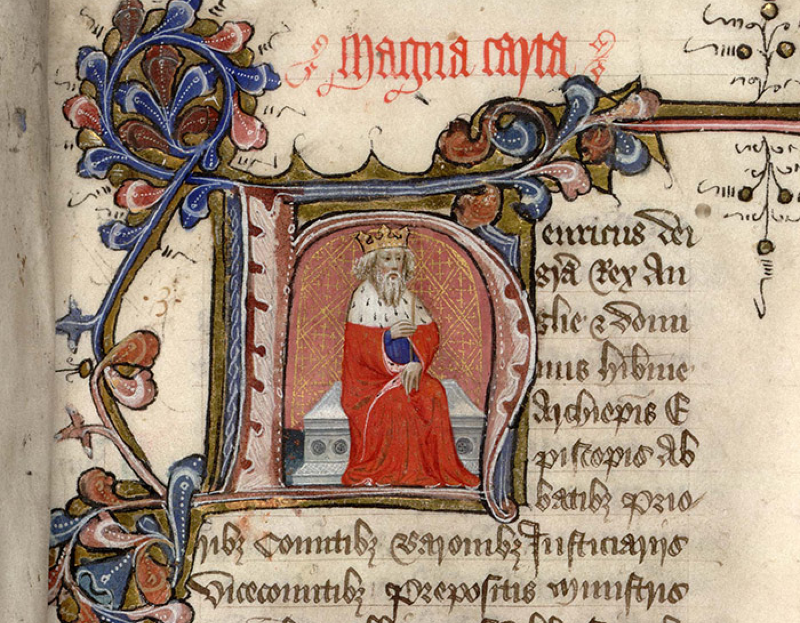 magna carta
Henricus dei
gr̄a Rex An
glie & domi
nus hib̄nie
Archiep̄is E
piscopis Ab
batibȝ prio
ribȝ Comitibȝ Baronibȝ Justiciarijs
Vicecomitibȝ Prepositis Ministris